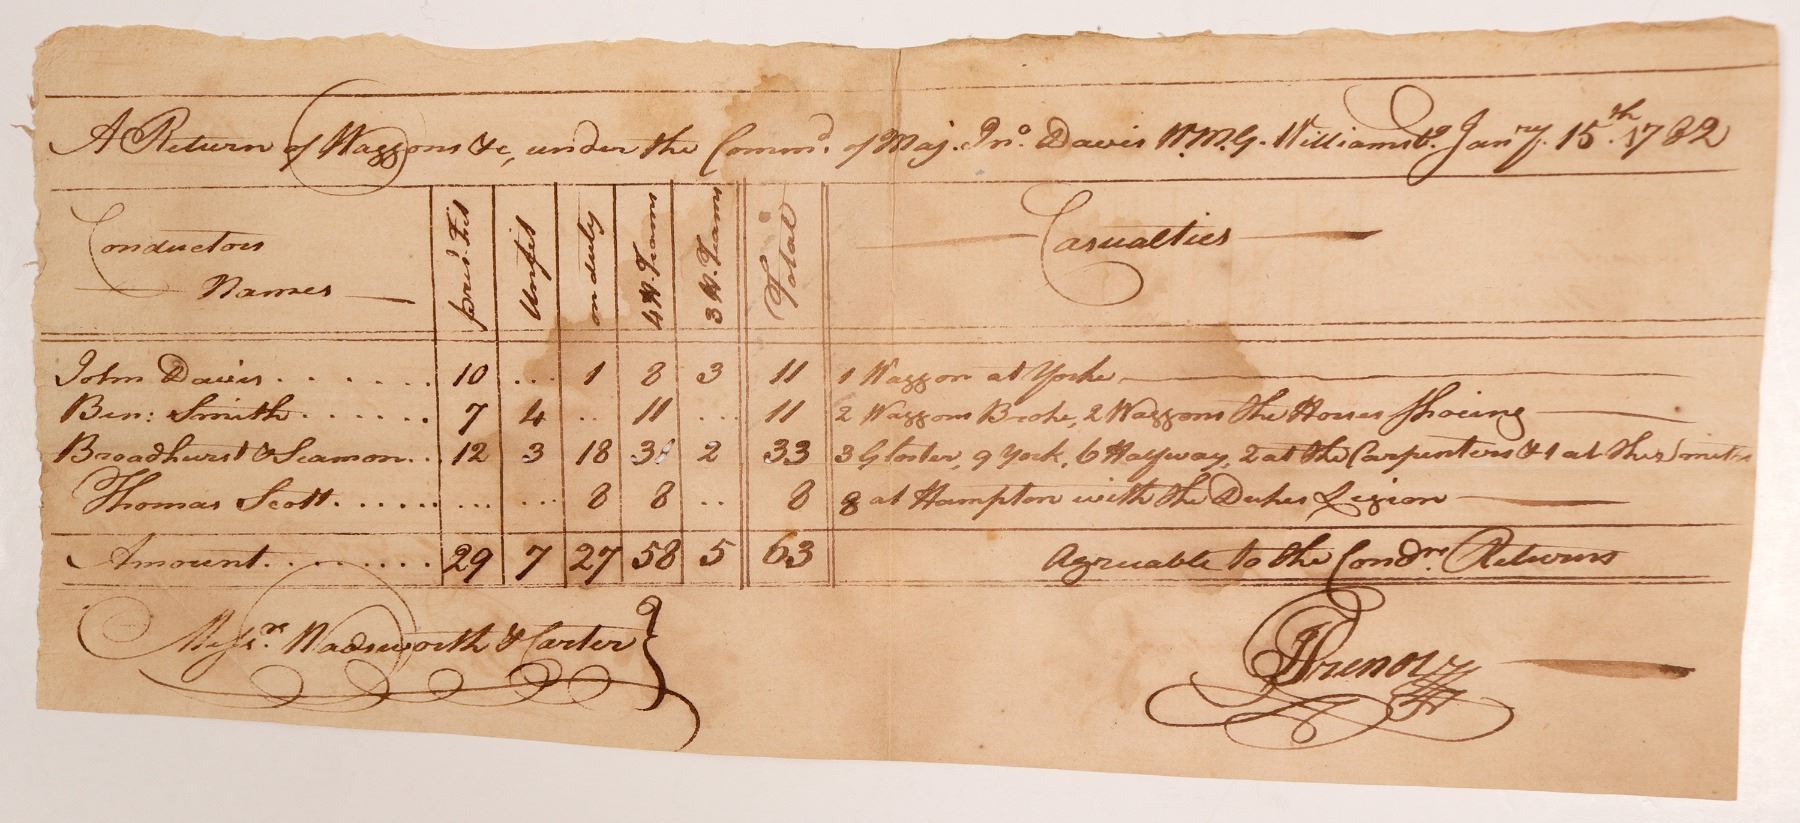 A Return of Waggons &c, under the Comm.d of Maj. Jn.o Davis W.M.G. Williamsb.g Jan.ry 15.th 1782
Conductors Names pres.t Fit Unfit on duty 4 H. Teams 3 H. Teams Total Casualties
John Davis . . . . . . . 10 ... 1 8 3 11 1 Waggon at Yorke
Ben: Smith . . . . . . 7 4 .. 11 ... 11 2 Waggons Broke, 2 Waggons the Horses Shoeing
Broadhurst & Seamon . . 12 3 18 31 2 33 3 Gloster, 9 York, 6 Halfway, 2 at the Carpenters & 1 at the Smiths
Thomas Scott . . . . . . ... ... 8 8 .. 8 8 at Hampton with the Dukes Legion
Amount . . . . . . . . . 29 7 27 58 5 63 Agreuable to the Cond.rs Returns
Mess.rs Wadsworth & Carter